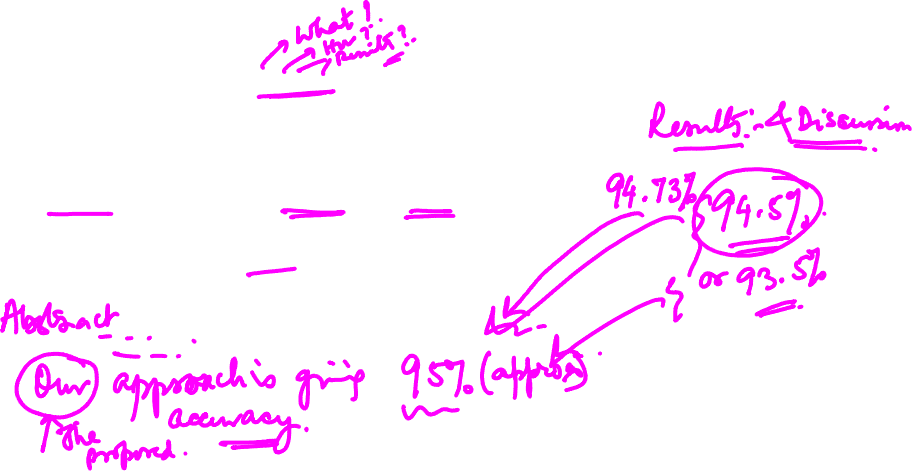 What?
How?
Result?
Results & Discussion
94.73%
94.5%
or 93.5%
Abstract
Our approach is giving 95% (approx)
accuracy.
The
proposed.